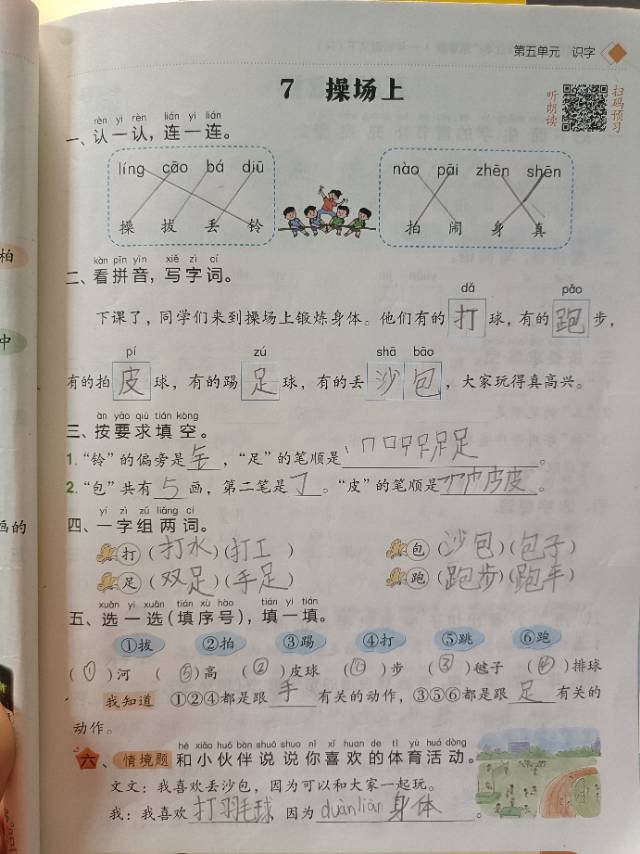 第五单元 识字
7 操场上
听朗读
扫码预习
rèn yi rèn lián yi lián
一、认一认，连一连。
líng cāo bá diū
操 拔 丢 铃
nào pāi zhēn shēn
拍 闹 身 真
kàn pīn yīn xiě zì cí
二、看拼音，写字词。
dǎ pǎo
下课了，同学们来到操场上锻炼身体。他们有的打球，有的跑步，
pí zú shā bāo
有的拍皮球，有的踢足球，有的丢沙包，大家玩得真高兴。
àn yāo qiú tián kòng
三、按要求填空。
1.“铃”的偏旁是钅，“足”的笔顺是丨𠃍口口𧾷足足。
2.“包”共有5画，第二笔是㇆。“皮”的笔顺是 皮。
yí zì zǔ liǎng cí
四、一字组两词。
打（打水）（打工） 包（沙包）（包子）
足（双足）（手足） 跑（跑步）（跑车）
xuǎn yi xuǎn tián xù hào tián yi tián
五、选一选（填序号），填一填。
①拔 ②拍 ③踢 ④打 ⑤跳 ⑥跑
（①）河 （⑤）高 （②）皮球 （ ）步 （③）毽子 （ ）排球
我知道 ①②④都是跟手有关的动作，③⑤⑥都是跟足有关的
动作。
hé xiǎo huǒ bàn shuō shuo nǐ xǐ huan de tǐ yù huó dòng
六、情境题 和小伙伴说说你喜欢的体育活动。
文文：我喜欢丢沙包，因为可以和大家一起玩。
我：我喜欢打羽毛球 因为duànliàn身体。
柏
中
画的